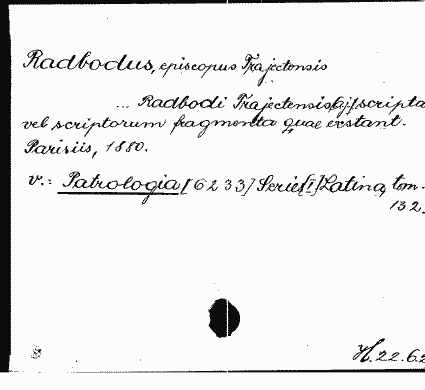 Radbodus, episcopus Trajectensis
... Radbodi Trajectensis scripta
vel scriptorum fragmenta quae exstant.
Parisiis, 1880.
v.: Patrologia [6233] Series [I] Latina, tom.
132.
H. 22.62